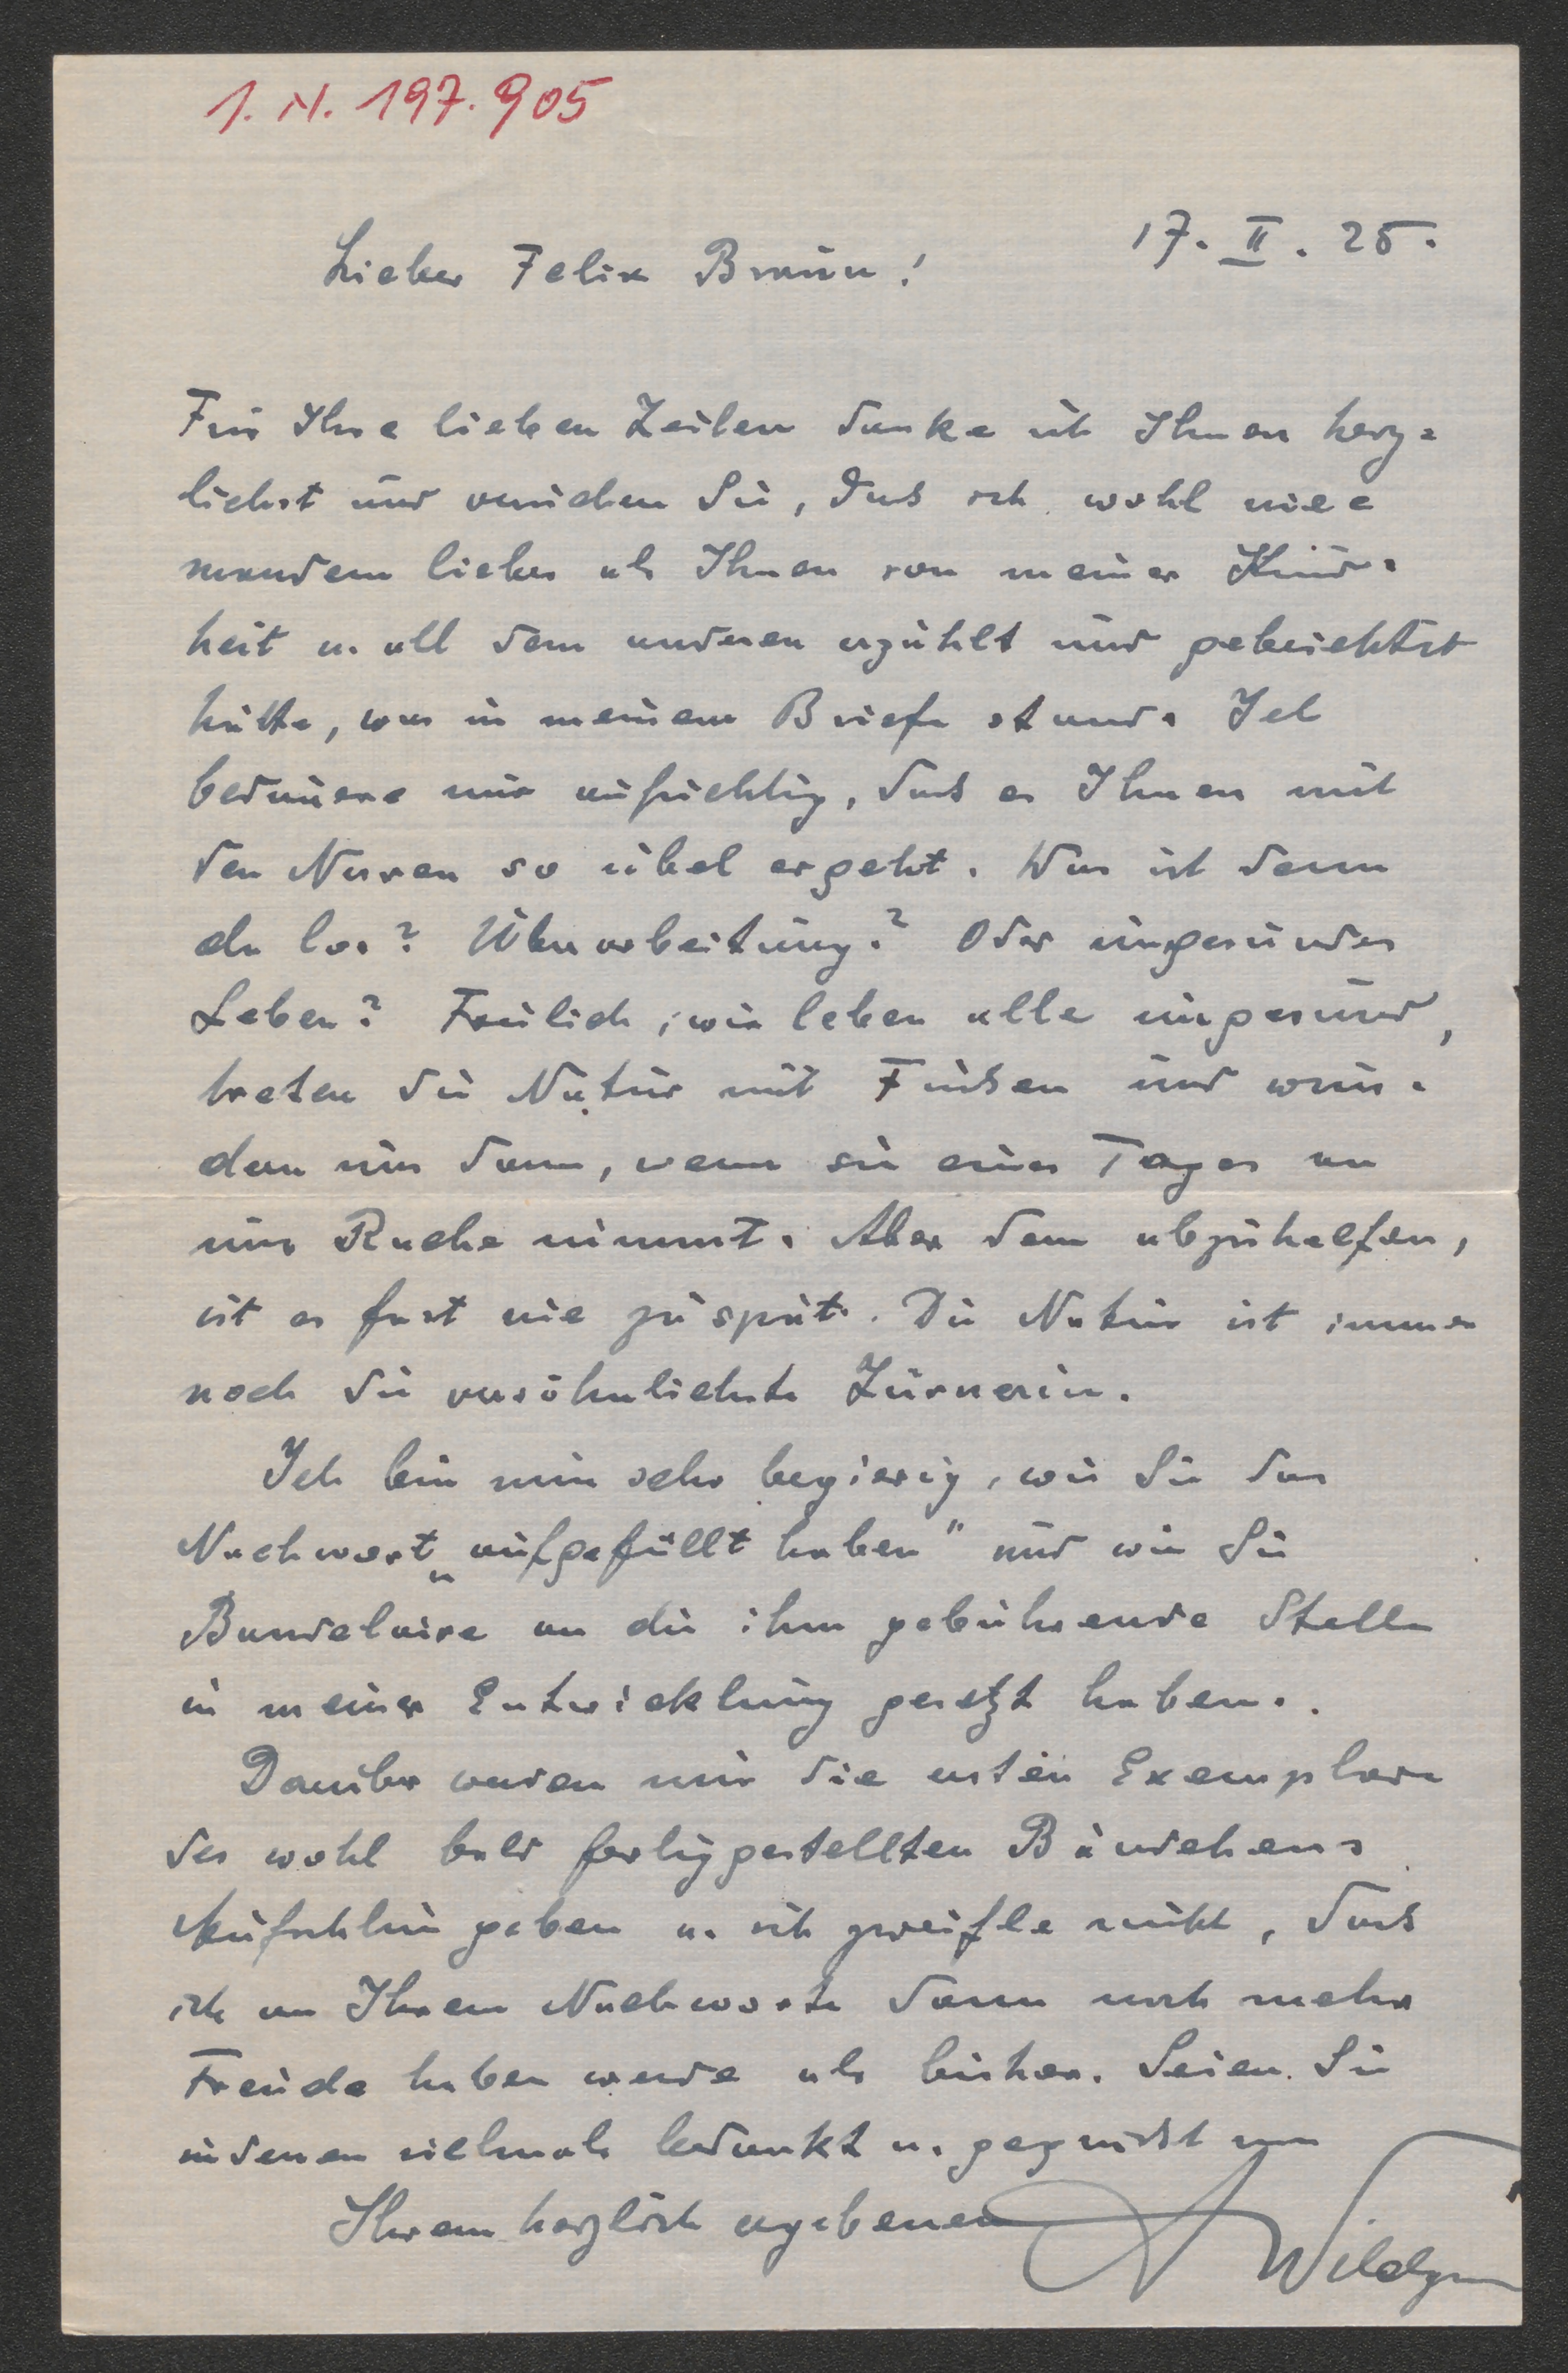 I. N. 197.905
17. II. 25.
Lieber Felix Braun!
Für Ihre lieben Zeilen danke ich Ihnen herz=
lichst und versichere Sie, dass ich wohl nie=
mandem lieber als Ihnen von meiner Kind=
heit u. all dem anderen erzählt und gebeichtet
hätte, was in meinem Briefe stand. Ich
bedauere nur aufrichtig, dass es Ihnen mit
den Nerven so übel ergeht. Was ist denn
da los? Überarbeitung? Oder ungesundes
Leben? Freilich, wir leben alle ungesund,
treten die Natur mit Füssen und wun=
dern uns dann, wenn sie eines Tages an
uns Rache nimmt. Aber dem abzuhelfen,
ist es fast nie zu spät. Die Natur ist immer
noch die versöhnlichste Zürnerin.
Ich bin nun sehr begierig, wie Sie das
Nachwort „aufgefüllt haben“ und wie Sie
Baudelaire an die ihm gebührende Stelle
in meiner Entwicklung gesetzt haben.
Darüber werden mir die ersten Exemplare
des wohl bald fertiggestellten Bändchens
Aufschluss geben u. ich zweifle nicht, dass
ich an Ihrem Nachworte dann noch mehr
Freude haben werde als bisher. Seien Sie
indessen vielmals bedankt u. gegrüsst von
Ihrem herzlich ergebenen
A Wildgans